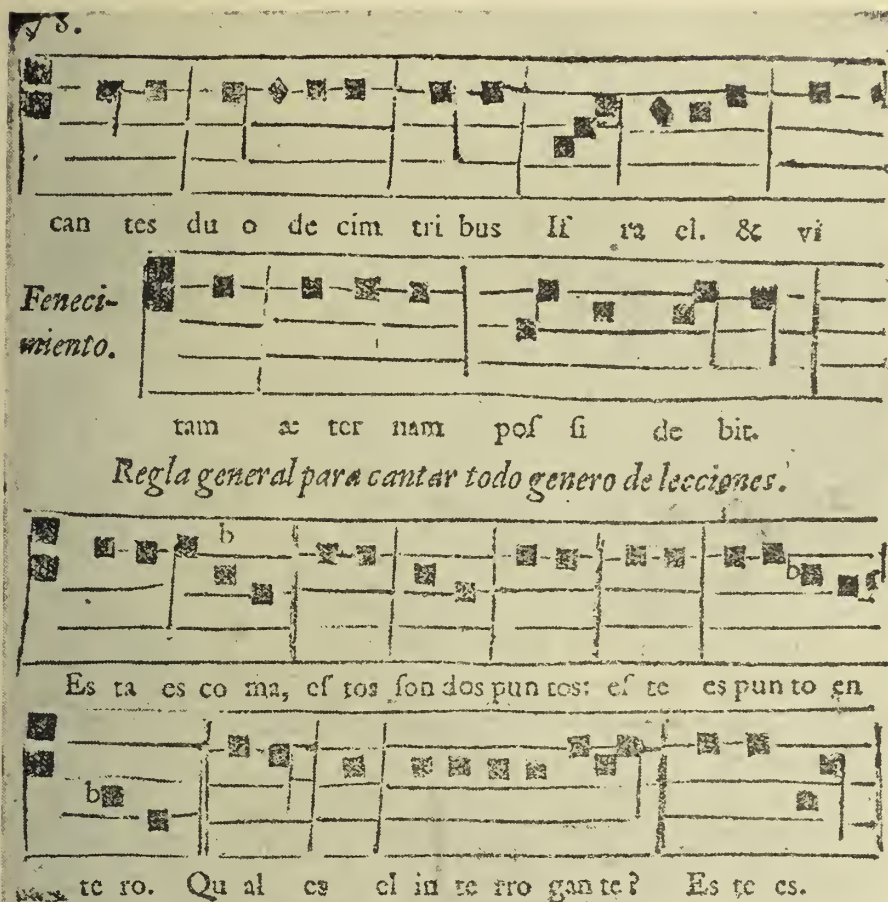 can tes du o de cim tri bus Iſ ra el. & vi
Feneci-
miento.
tam æ ter nam poſ ſi de bit.
Regla general para cantar todo genero de lecciones.
b
b
Es ta es co ma, eſ tos ſon dos pun tos: eſ te es pun to en
b
te ro. Qu al es el in te rro gan te? Es te es.